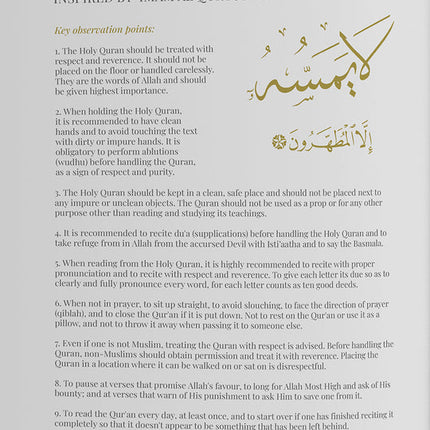 Key observation points:
لَا يَمَسُّهُ
إِلَّا الْمُطَهَّرُونَ
1. The Holy Quran should be treated with
respect and reverence. It should not be
placed on the floor or handled carelessly.
They are the words of Allah and should
be given highest importance.
2. When holding the Holy Quran,
it is recommended to have clean
hands and to avoid touching the text
with dirty or impure hands. It is
obligatory to perform ablutions
(wudhu) before handling the Quran,
as a sign of respect and purity.
3. The Holy Quran should be kept in a clean, safe place and should not be placed next to
any impure or unclean objects. The Quran should not be used as a prop or for any other
purpose other than reading and studying its teachings.
4. It is recommended to recite du'a (supplications) before handling the Holy Quran and to
take refuge from in Allah from the accursed Devil with Isti'aatha and to say the Basmala.
5. When reading from the Holy Quran, it is highly recommended to recite with proper
pronunciation and to recite with respect and reverence. To give each letter its due so as to
clearly and fully pronounce every word, for each letter counts as ten good deeds.
6. When not in prayer, to sit up straight, to avoid slouching, to face the direction of prayer
(qiblah), and to close the Qur'an if it is put down. Not to rest on the Qur'an or use it as a
pillow, and not to throw it away when passing it to someone else.
7. Even if one is not Muslim, treating the Quran with respect is advised. Before handling the
Quran, non-Muslims should obtain permission and treat it with reverence. Placing the
Quran in a location where it can be walked on or sat on is disrespectful.
8. To pause at verses that promise Allah's favour, to long for Allah Most High and ask of His
bounty; and at verses that warn of His punishment to ask Him to save one from it.
9. To read the Qur'an every day, at least once, and to start over if one has finished reciting it
completely so that it doesn't appear to be something that has been left behind.